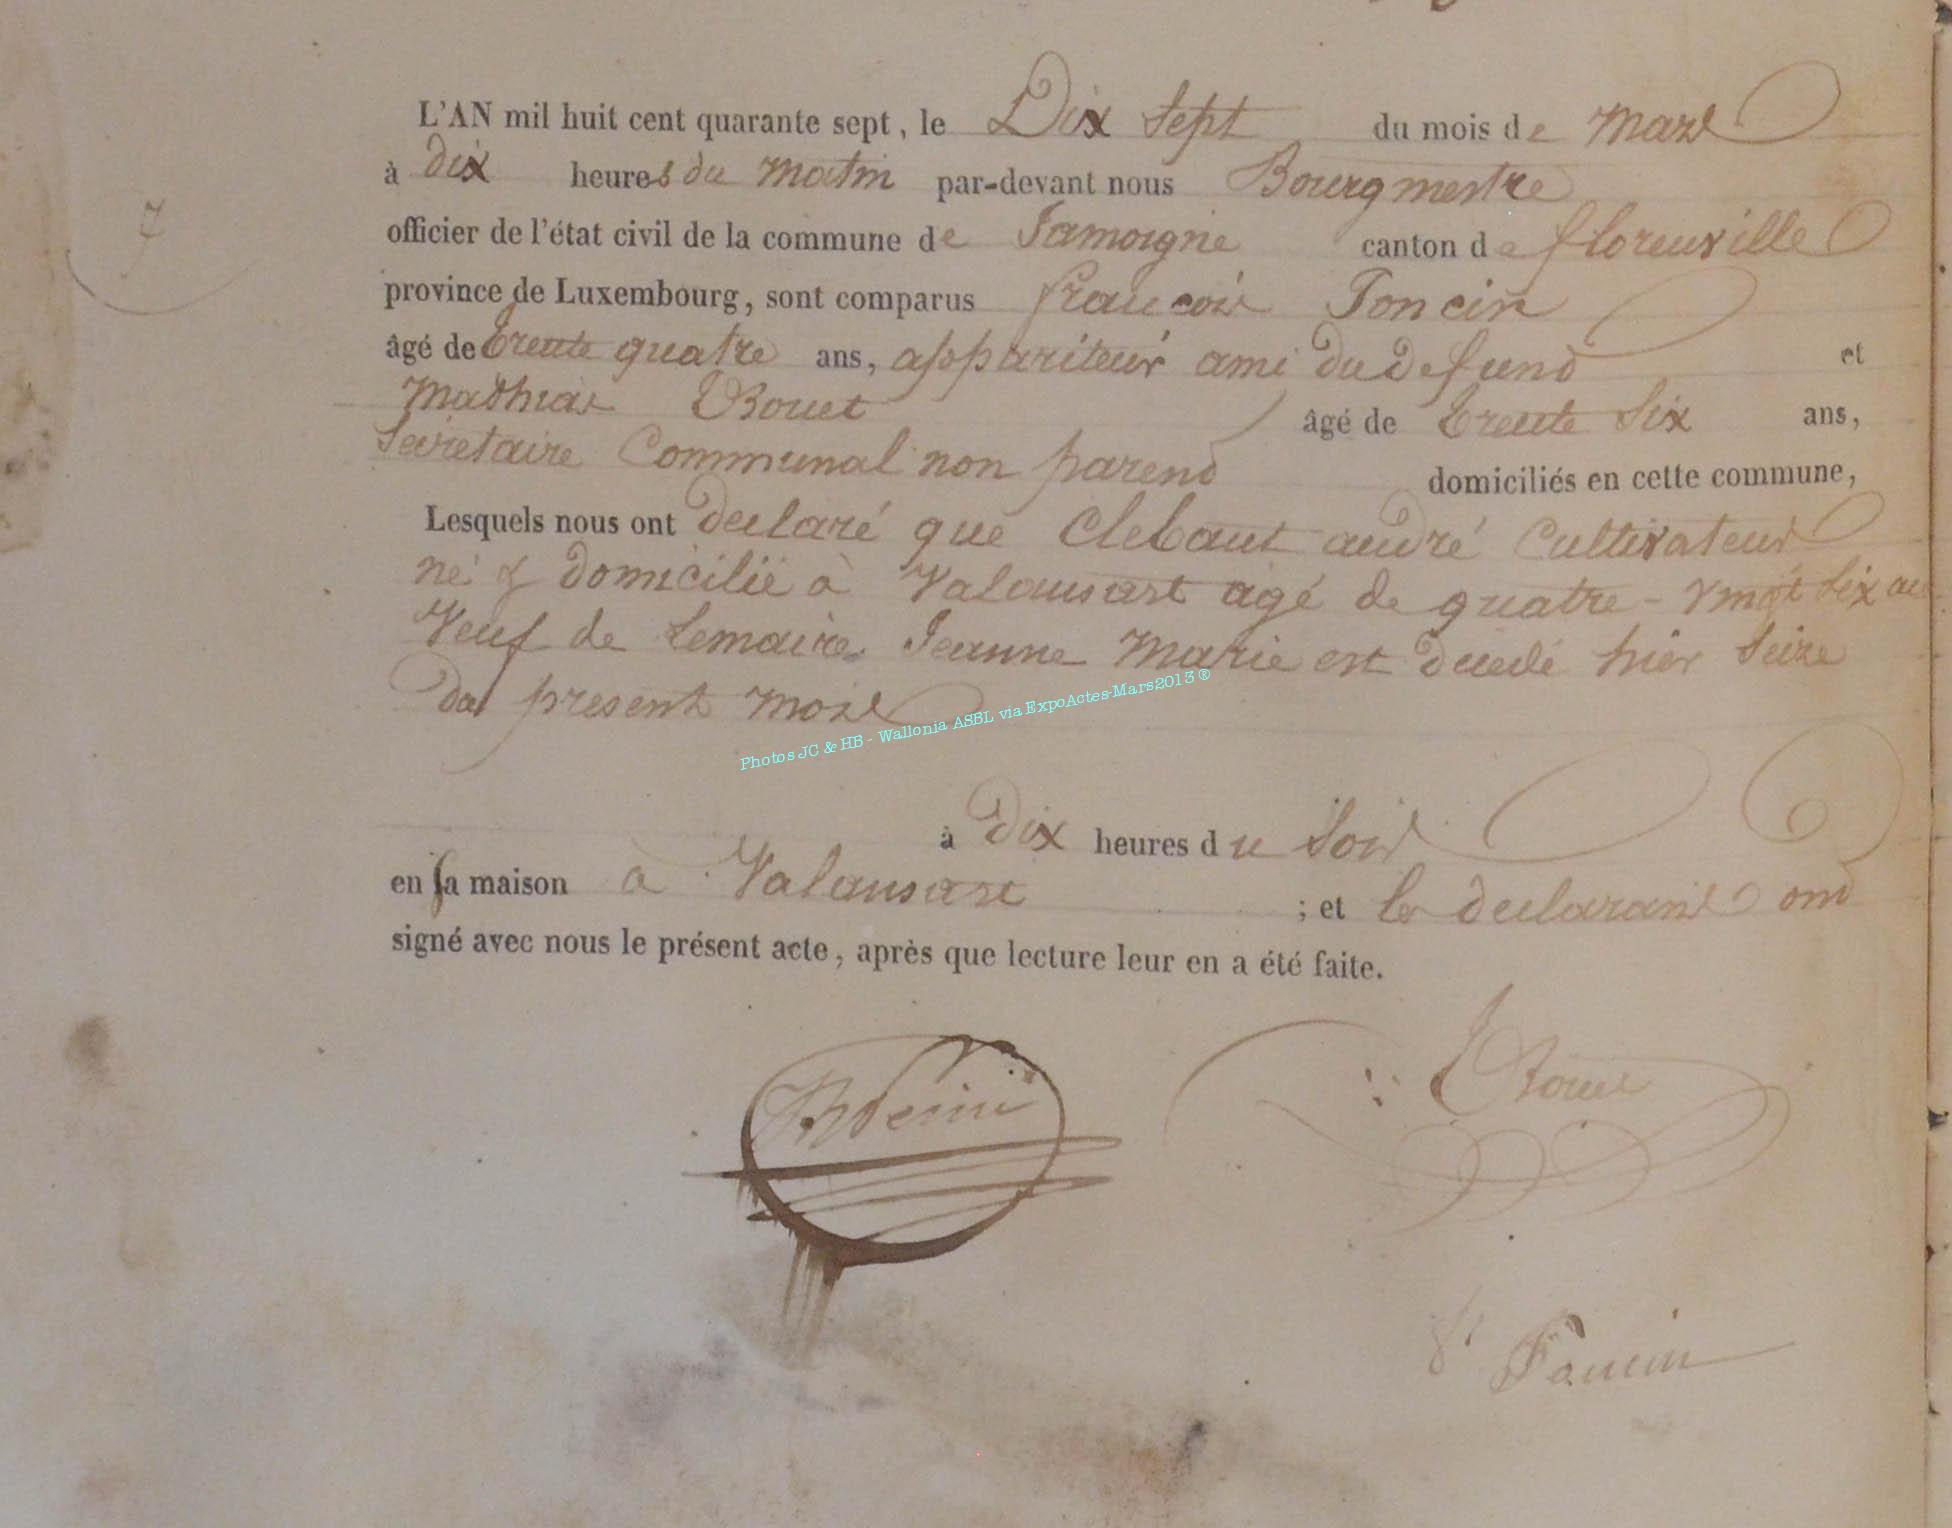 7
L'AN mil huit cent quarante sept, le Dix Sept du mois de Mars
à dix heures du matin par-devant nous Bourgmestre
officier de l'état civil de la commune de Jamoigne canton de florenville
province de Luxembourg, sont comparus françois Poncin
âgé de trente quatre ans, appariteur ami du defund et
Mathias Bouet âgé de trente Six ans,
Secretaire Communal non parend domiciliés en cette commune,
Lesquels nous ont declaré que Clebant andré Cultivateur
né & domicilié à Valansart agé de quatre-vingt Six an
Veuf de Lemaire Jeanne Marie est decedé hier Seize
du present mois
Photos JC & HB - Wallonia ASBL via ExpoActes-Mars2013®
à dix heures du Soir
en sa maison à Valansart ; et les declarans ond
signé avec nous le présent acte, après que lecture leur en a été faite.